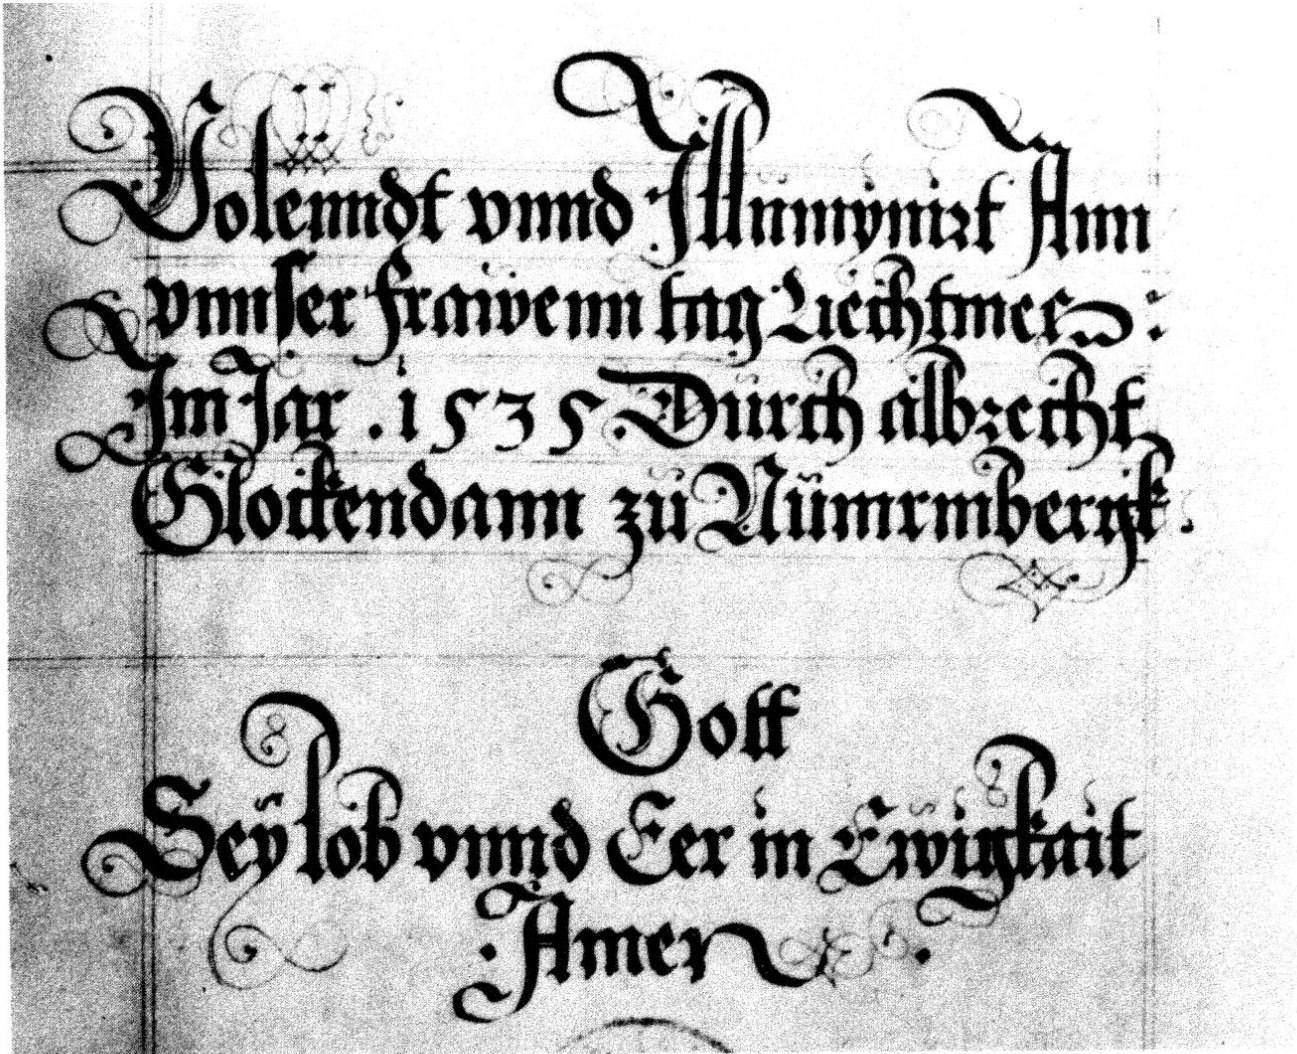 Volenndt vnnd Illuminirt Ann
vnnser frawenn tag Liechtmes :
Im Jar . 1535 Durch albrecht
Glockendann zu Nurmbergk .
Gott
Sey lob vnnd Eer in Ewigkait
Amen .